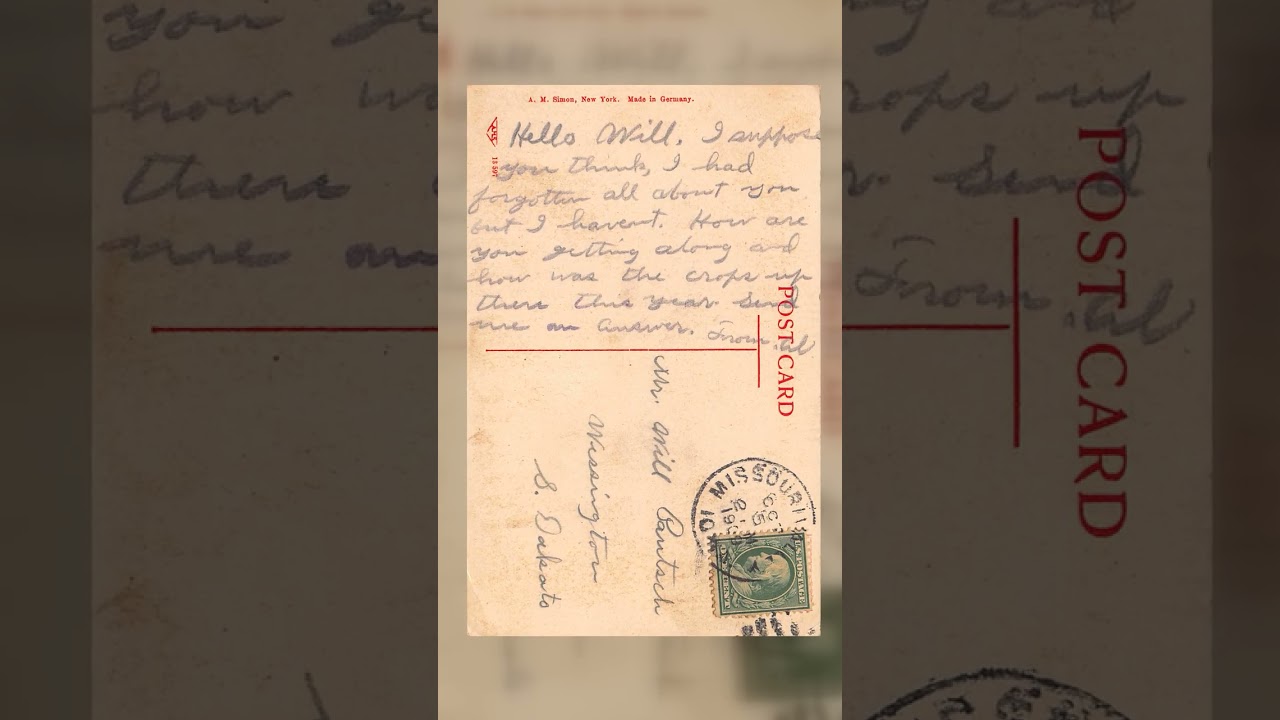 A. M. Simon, New York. Made in Germany.
Hello Will. I suppose
you think, I had
forgotten all about you
but I havent. How are
you getting along and
how was the crops up
there this year. Send
me an answer.
From. Al
POST CARD
Mr. Will Pautsch
Wessington
S. Dakato
MISSOURI
OCT
5
U.S. POSTAGE
ONE CENT